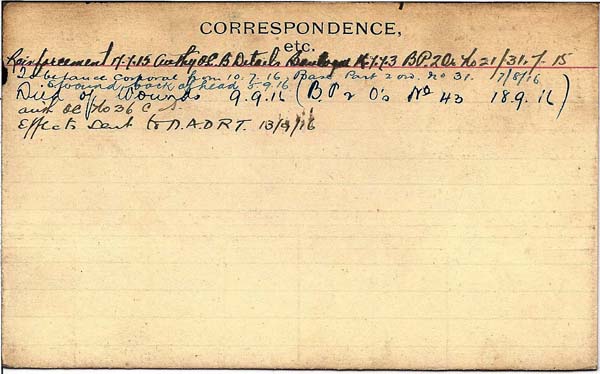 CORRESPONDENCE,
etc.
Reinforcement 17.7.15 Auth OC B Details B.P.2Or. No 21/31.7.15
To be Lance Corporal from 10.7.16, Base Part 2 ord. No 31. 7/8/16
wound, back of head 5.9.16
Died of Wounds 9.9.16 (B.P 2 O's No 43 18.9.16)
auth OC No 36 C
Effects sent to D.A.D.R.T. 13/9/16